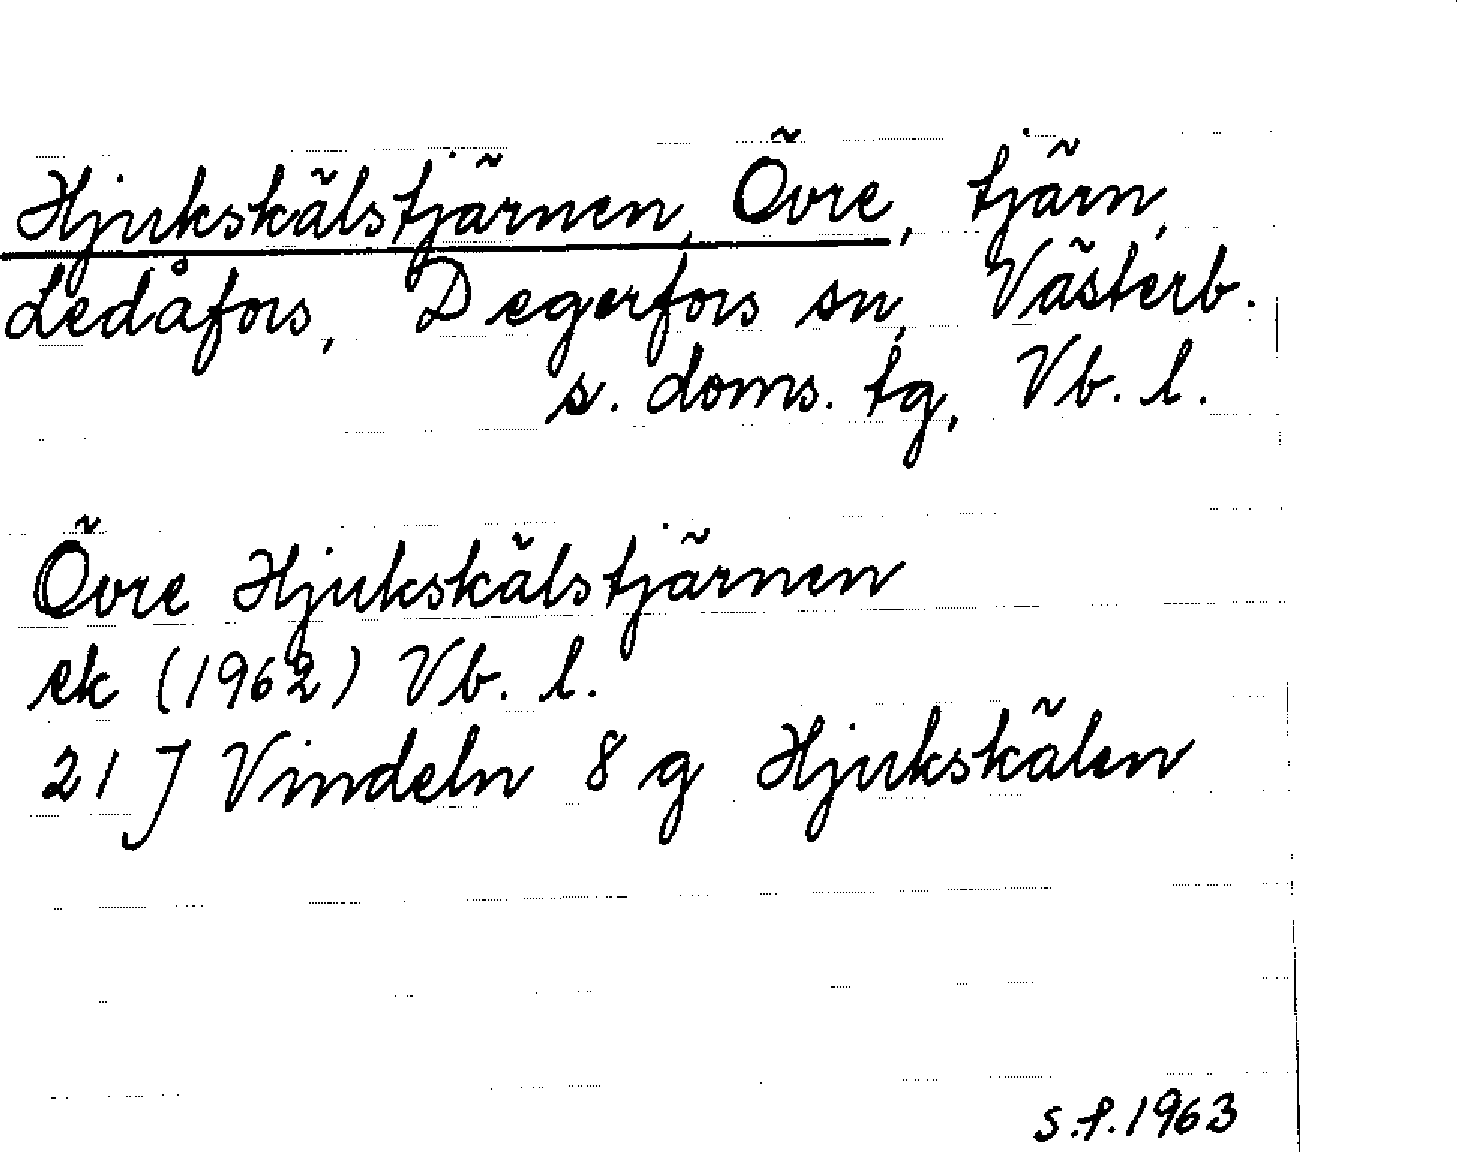 Hjukskälstjärnen, Övre, tjärn,
Ledåfors, Degerfors sn, Västerb.
s. doms. tg, Vb. l.
Övre Hjukskälstjärnen
ek (1962) Vb. l.
21 J Vindeln 8 g Hjukskälen
S.f. 1963